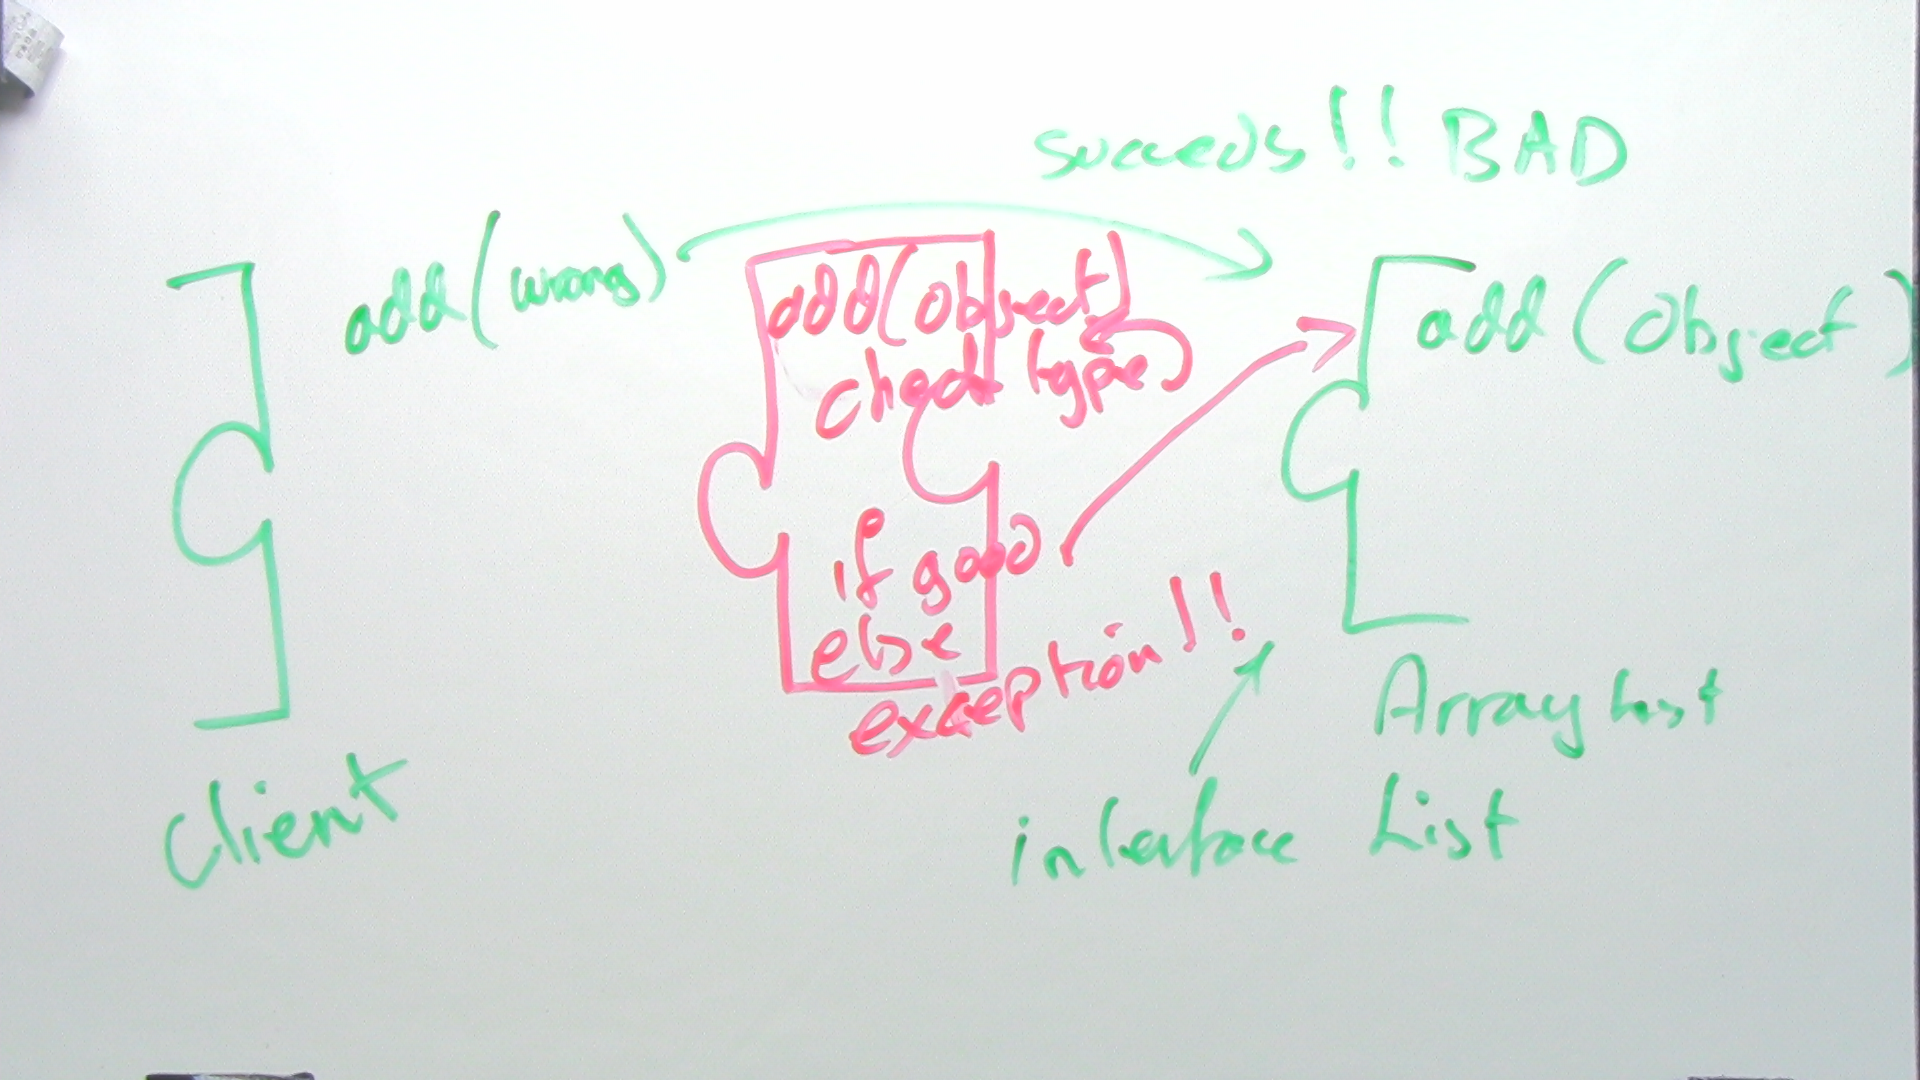 succeeds!! BAD
add(wrong)
add(Object)
check type)
if good
else
exception!!
add(Object)
ArrayList
Client
interface List